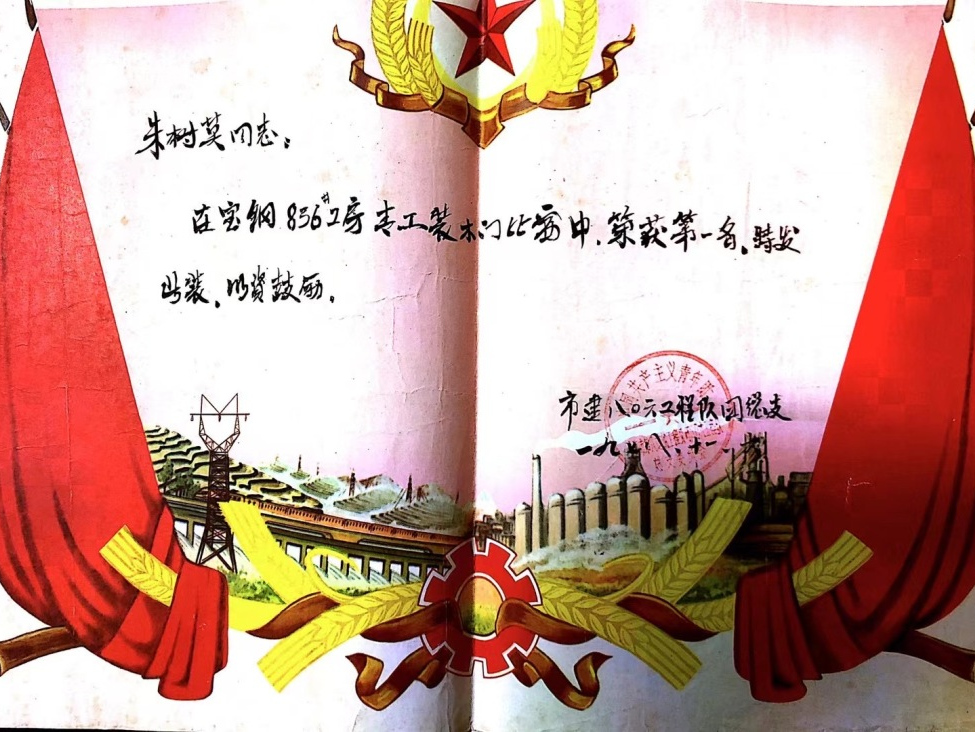 朱树英同志：
在宝钢836#工房青工装木门比赛中，荣获第一名，特发
此奖，以资鼓励。
共产主义青年团
市建八〇六工程队团总支
一九七八、十一、